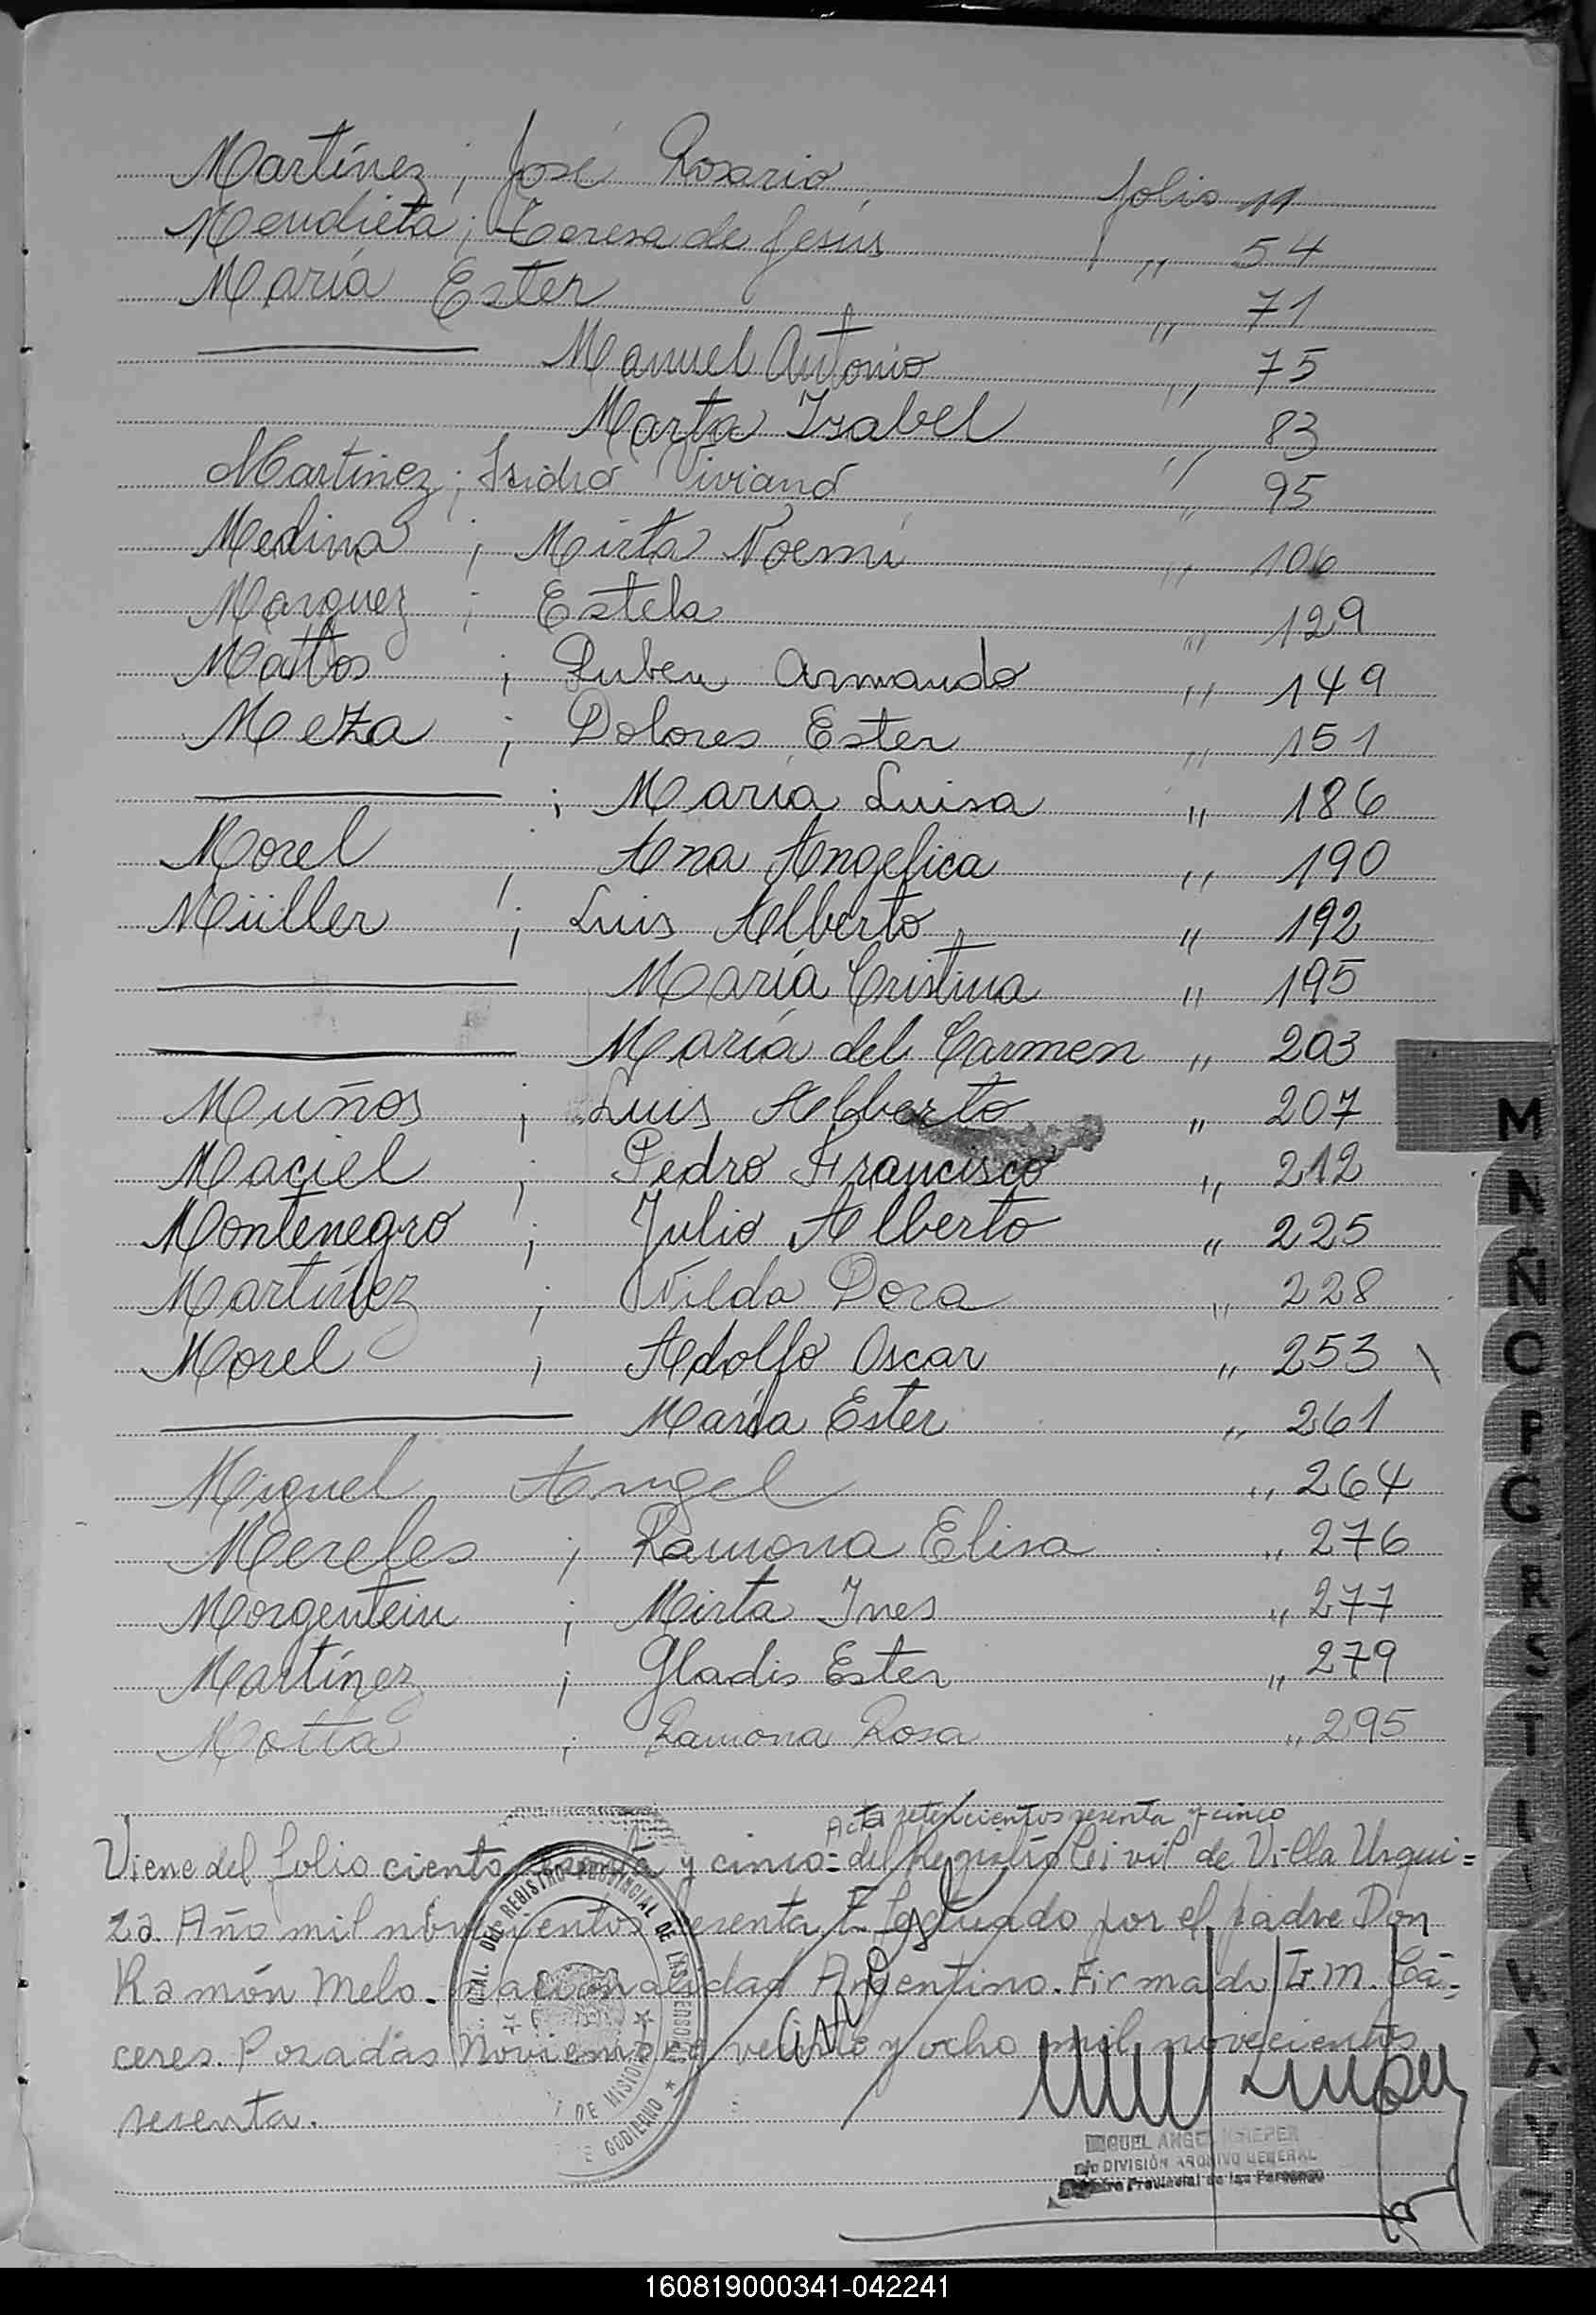 Martínez ; José Rosario folio 11
Mendieta ; Teresa de Jesús " 54
María Ester " 71
Manuel Antonio " 75
Marta Isabel " 83
Martinez ; Isidro Viviano " 95
Medina ; Mirta Noemí " 106
Marquez ; Estela " 129
Mattos ; Ruben Armando " 149
Meza ; Dolores Ester " 151
; María Luisa " 186
Morel ; Ana Angelica " 190
Müller ; Luis Alberto " 192
María Cristina " 195
María del Carmen " 203
Muños ; Luis Alberto " 207
Maciel ; Pedro Francisco " 212
Montenegro ; Julio Alberto " 225
Martínez ; Nilda Dora " 228
Morel ; Adolfo Oscar " 253
María Ester " 261
Miguel Angel " 264
Mereles ; Ramona Elisa " 276
Morgentein ; Mirta Ines " 277
Martínez ; Gladis Ester " 279
Motta ; Ramona Rosa " 295
Acta setescientos sesenta y cinco
Viene del folio ciento y cinco = del Registro Civil de Villa Urqui=
za. Año mil novecientos sesenta. Efectuado por el padre Don
Ramón Melo. nacionalidad Argentino. Firmado M. Cá=
ceres. Posadas Noviembre veinte y ocho mil novecientos
sesenta.
GRAL. DEL REGISTRO PROVINCIAL DE LAS PERSONAS
DE MISIONES
DE GOBIERNO
MIGUEL ANGEL
DIVISIÓN ARCHIVO GENERAL
Registro Provincial de las Personas
M
N
Ñ
O
P
G
R
S
T
160819000341-042241